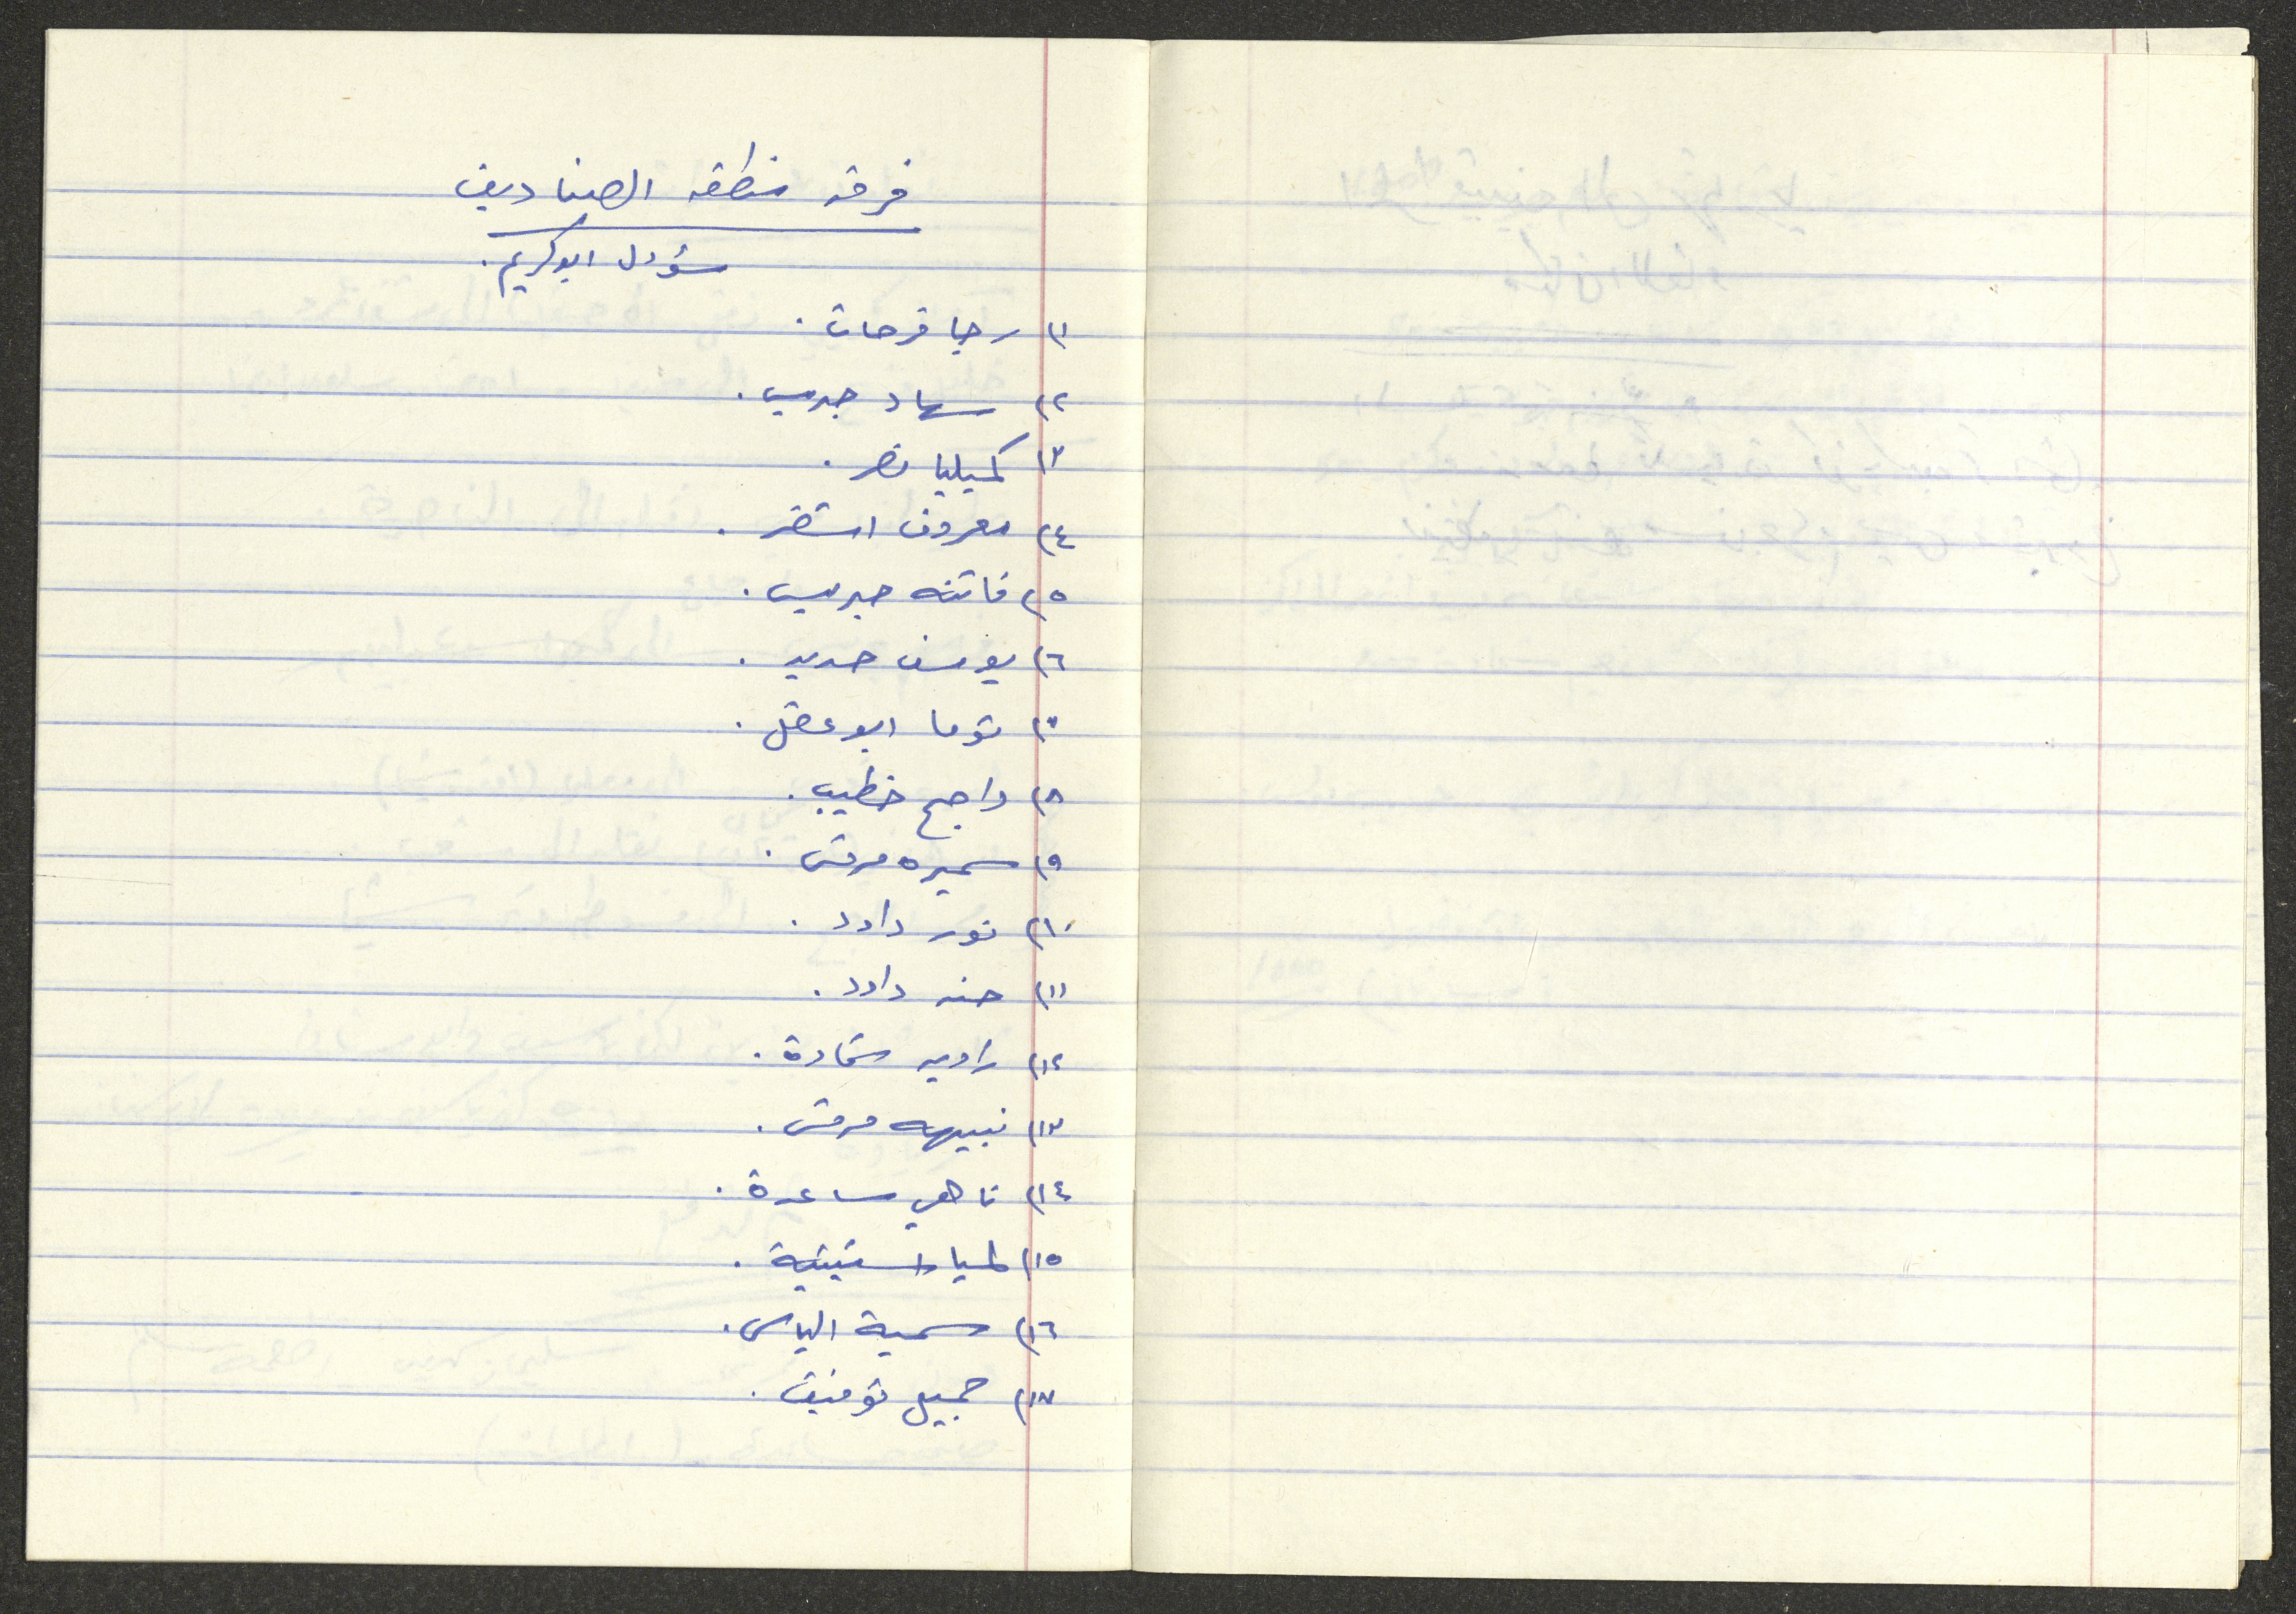 فرقة منطقه الصناديق
مسؤول ابو كريم.
١) رجا فرحات.
٢) سهاد جريس.
٣) كميليا نصر.
٤) معروف اشقر.
٥) فاتنه جريس.
٦) يوسف حديد.
٧) توما ابو عقل.
٨) راجح خطيب.
٩) سميره مرقس.
١٠) نور داود.
١١) حنه داود.
١٢) راويه شحادة.
١٣) نبيهه مرقس.
١٤) ناهي مساعدة.
١٥) لميا
١٦) سمية الياس.
١٧) جميل توفيق.